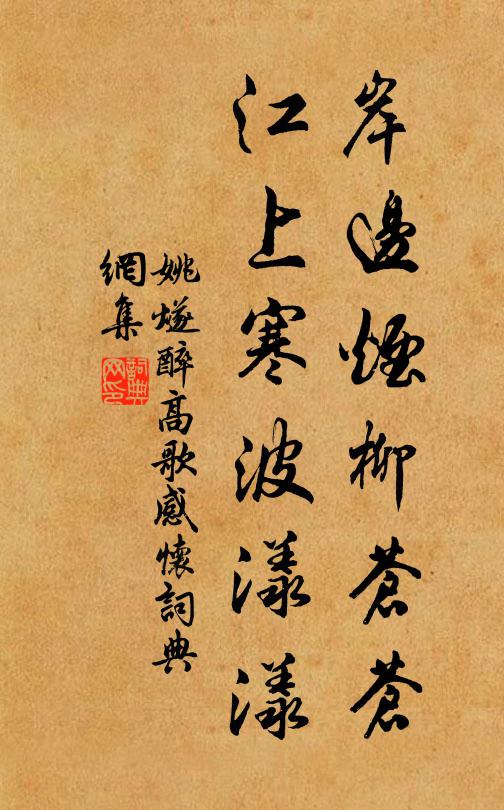 岸邊煙柳蒼蒼
江上寒波漾漾
姚燧醉高歌感懷詞典
網集
詞典网印